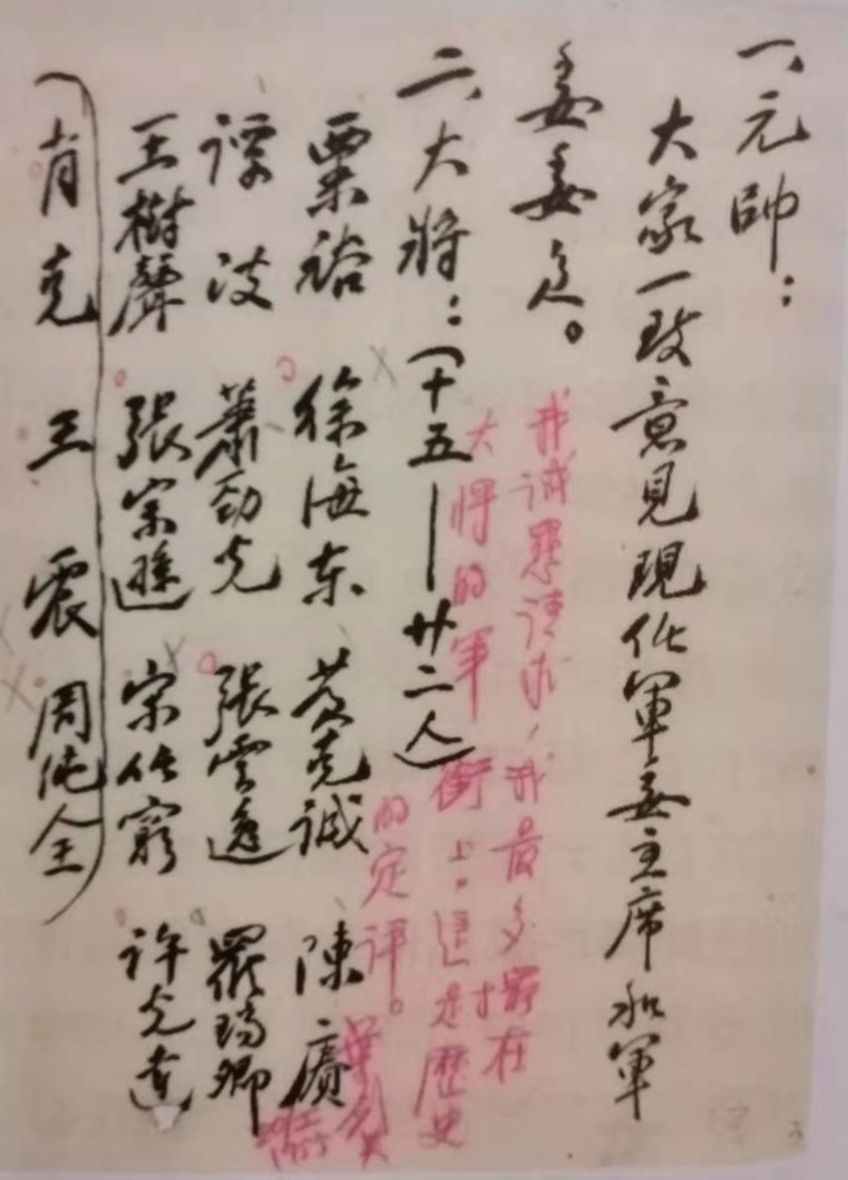 一、元帥：
大家一致意見現任軍委主席和軍
委委員。
二、大將：（十五——廿二人）
粟裕 徐海东 黄克诚 陳賡
谭政 蕭劲光 張雲逸 羅瑞卿
王樹聲 張宗遜 宋任窮 许光达
（肖克 王震 周纯全）
我诚恳请求，我最多摆在
大将的軍衔上。這才是歷史
的定评。